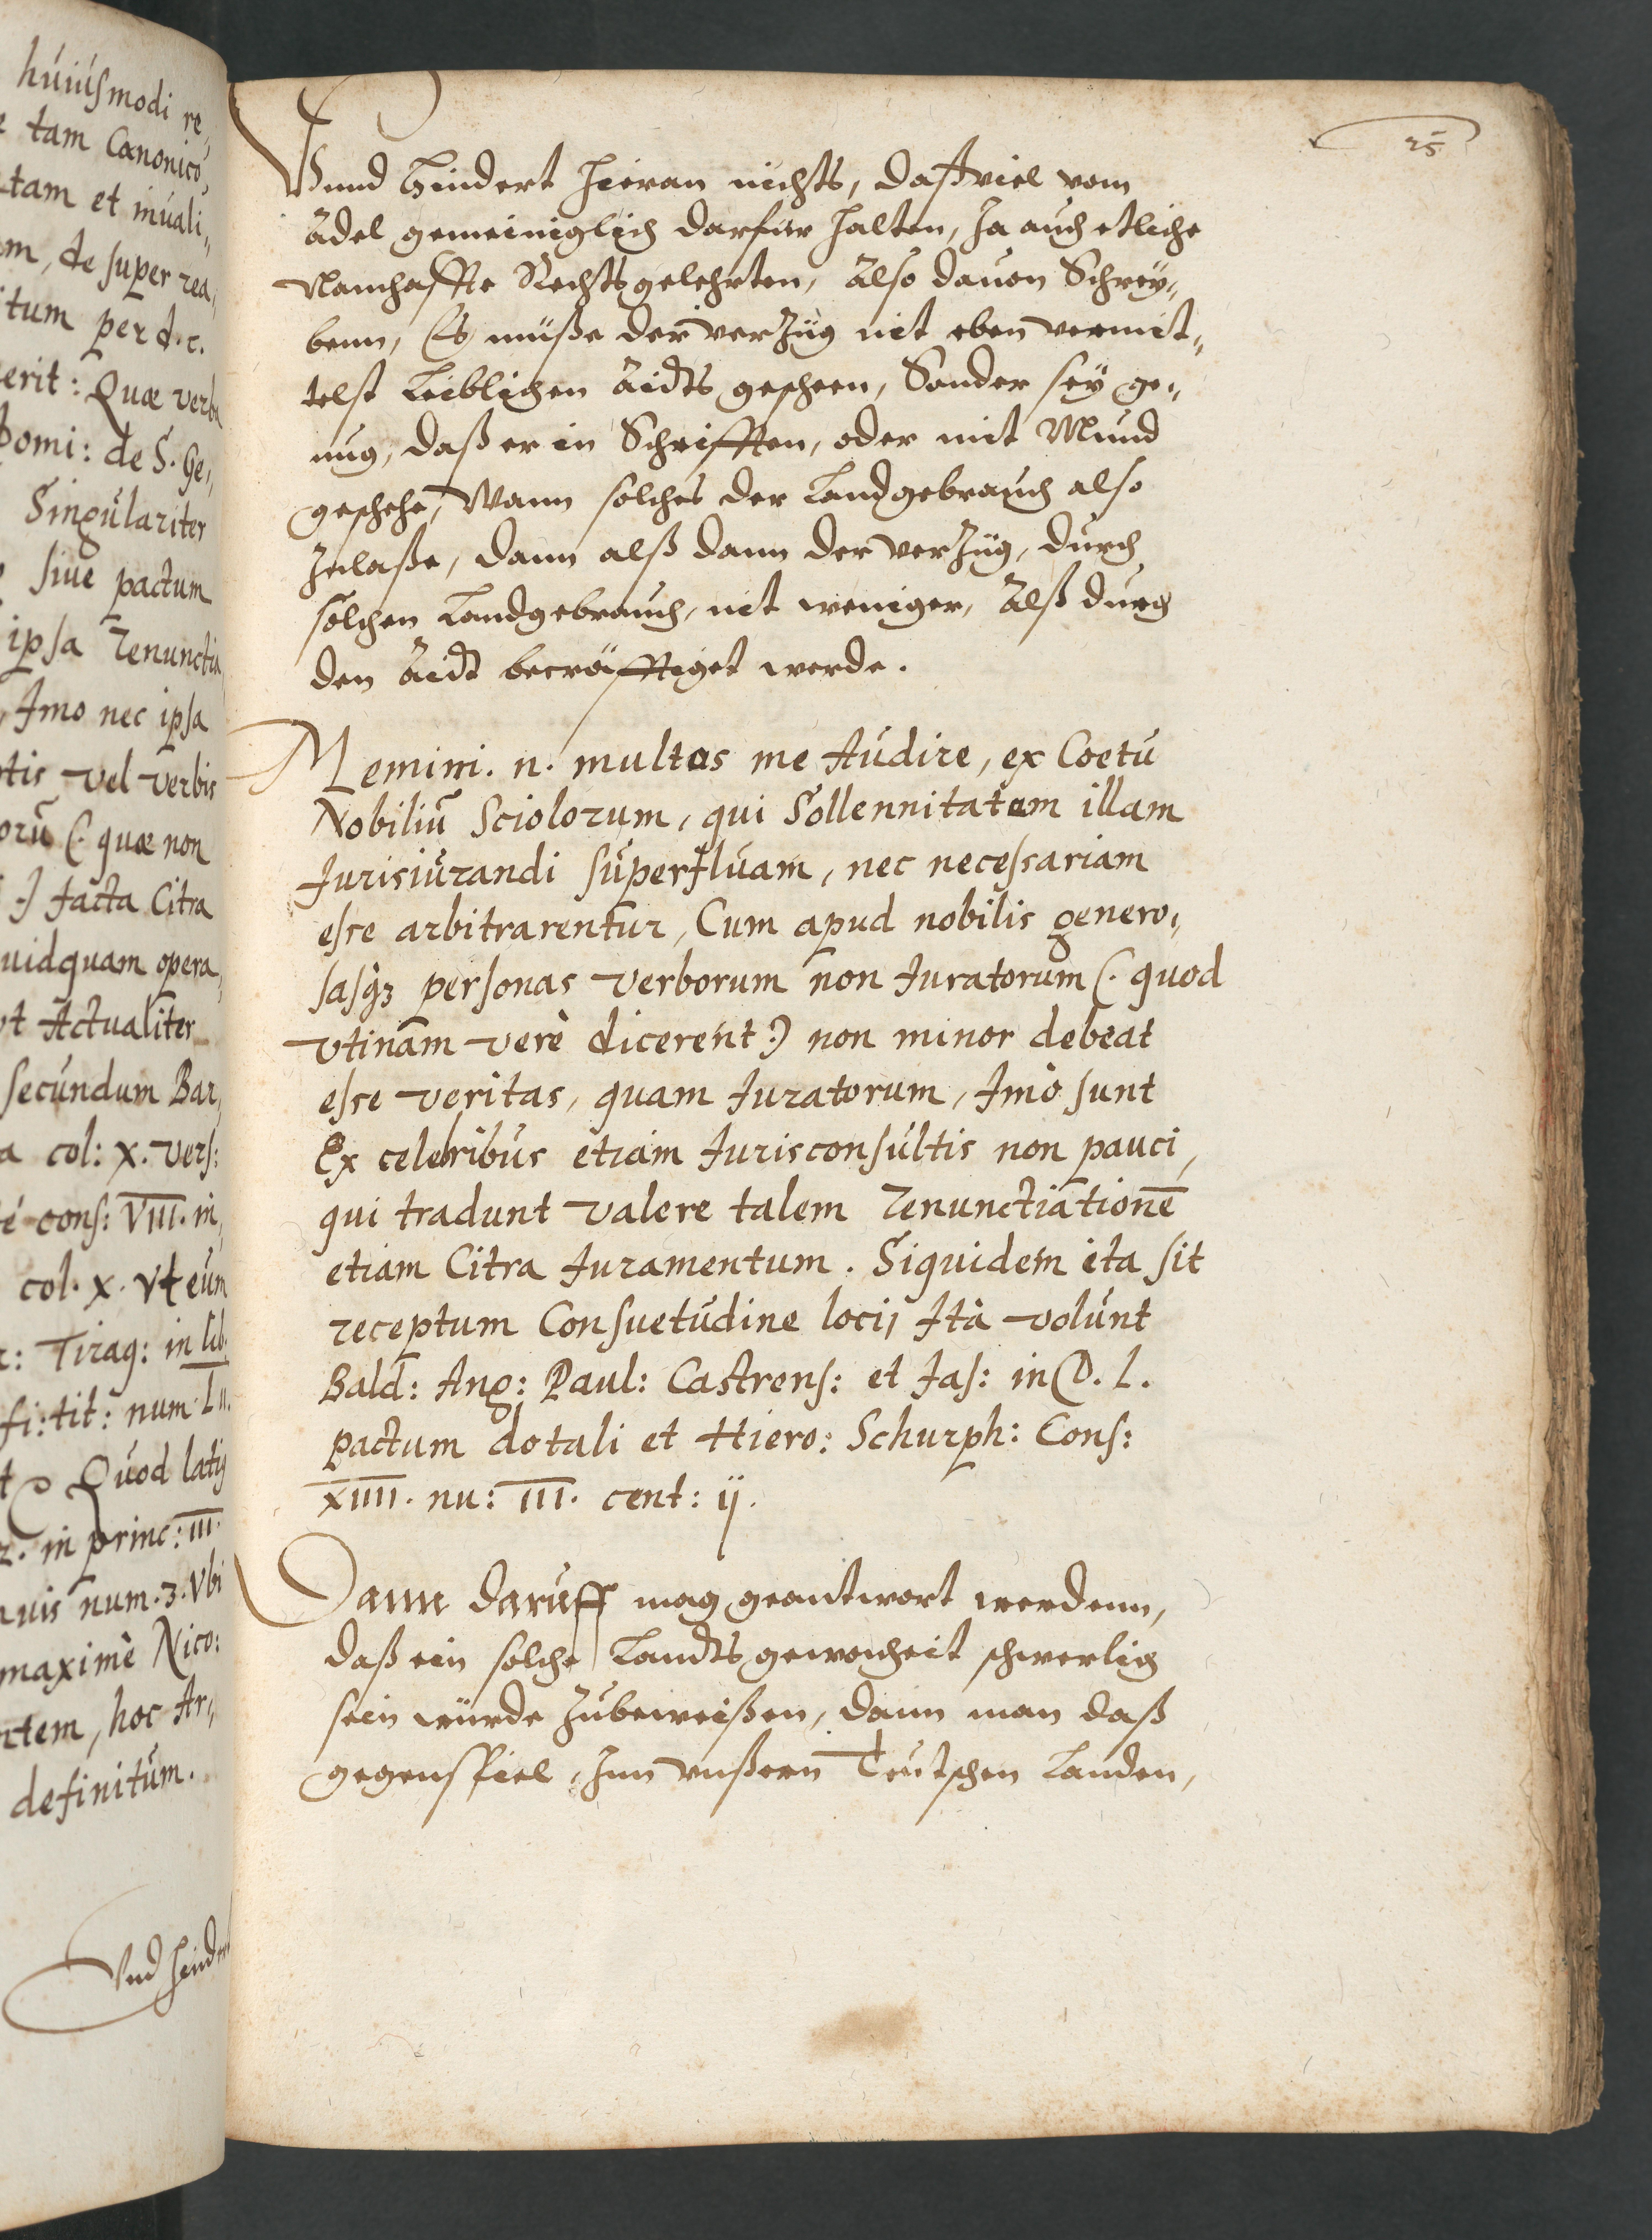 huiusmodi re„
tam Canonico„
tam et inuali„
m, de super rea„
tum per d. c.
erit: Quæ verba
Domi: de S. Ge„
Singulariter
siue pactum
ipsa renunctia
Imo nec ipsa
tis vel verbis
orũ (. quæ non
.) facta Citra
uidquam opera„
vt Actualiter
secundum Bar„
a col: X. vers:
é cons: VIII. in
col. X. vt eum
Tiraq: in lib.
fi: tit: num. L ii.
Quod latis
in princ: III.
uis num. 3. Vbi
maximè Nico:
tem, hoc Ar„
definitum.
Vnd hindert
25
Vnnd hindert hieran nichts, daß viel vom
Adel gemeiniglich darfur halten, Ja auch etliche
Namhaffte Rechtsgelehrten, Also dauon Schrey„
benn, Es müße der verzug nit eben vermit„
telst Leiblichen Aidts gescheen, Sonder sey ge„
nug, daß er in Schrifften, oder mit Mund
geschehe, Wann solches der Landgebrauch also
zulaße, dann alß dann der verzüg, durch
solchen Landgebrauch, nit weniger, Alß durch
den Aidt becräfftiget werde.
Memini. n. multos me Audire, ex Coetu
Nobiliũ Sciolorum, qui Sollennitatem illam
Iurisiurandi superfluam, nec necessariam
esse arbitrarentur, Cum apud nobilis genero„
sasqʒ personas verborum non Iuratorum (. quod
vtinam verè dicerent .) non minor debeat
esse veritas, quam Iuratorum, Imò sunt
Ex celebribus etiam Iurisconsultis non pauci,
qui tradunt valere talem renunctiationẽ
etiam Citra Iuramentum. Siquidem ita sit
receptum Consuetudine locij Ità volunt
Bald: Ang: Paul: Castrens: et Jas: in D. L.
pactum dotali et Hiero: Schurph: Cons:
XIIII. nu: III. cent: ij.
Dann daruff mag geantwort werdenn,
daß ein solche Landts gewonheit schwerlich
sein würde zubeweißen, dann man daß
gegenspiel, Inn vnßern Teutschen Landen,